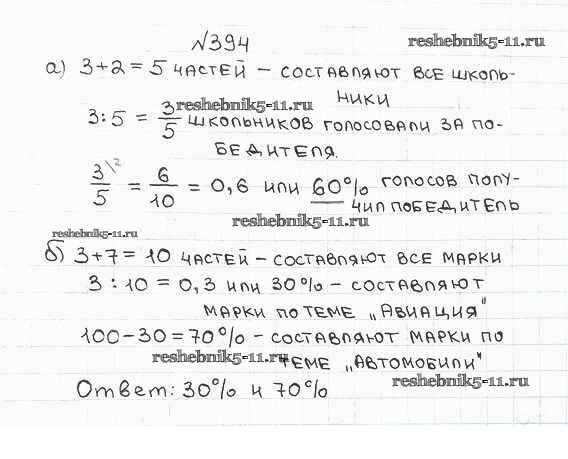 №394
reshebnik5-11.ru
а) 3+2=5 частей – составляют все школь-
ники
reshebnik5-11.ru
3:5 = 3/5 школьников голосовали за по-
бедителя.
3\2/5 = 6/10 = 0,6 или 60% голосов полу-
чил победитель
reshebnik5-11.ru
reshebnik5-11.ru
б) 3+7=10 частей – составляют все марки
3:10=0,3 или 30% – составляют
марки по теме „Авиация"
100–30=70% – составляют марки по
reshebnik5-11.ru
теме „Автомобили"
reshebnik5-11.ru
Ответ: 30% и 70%